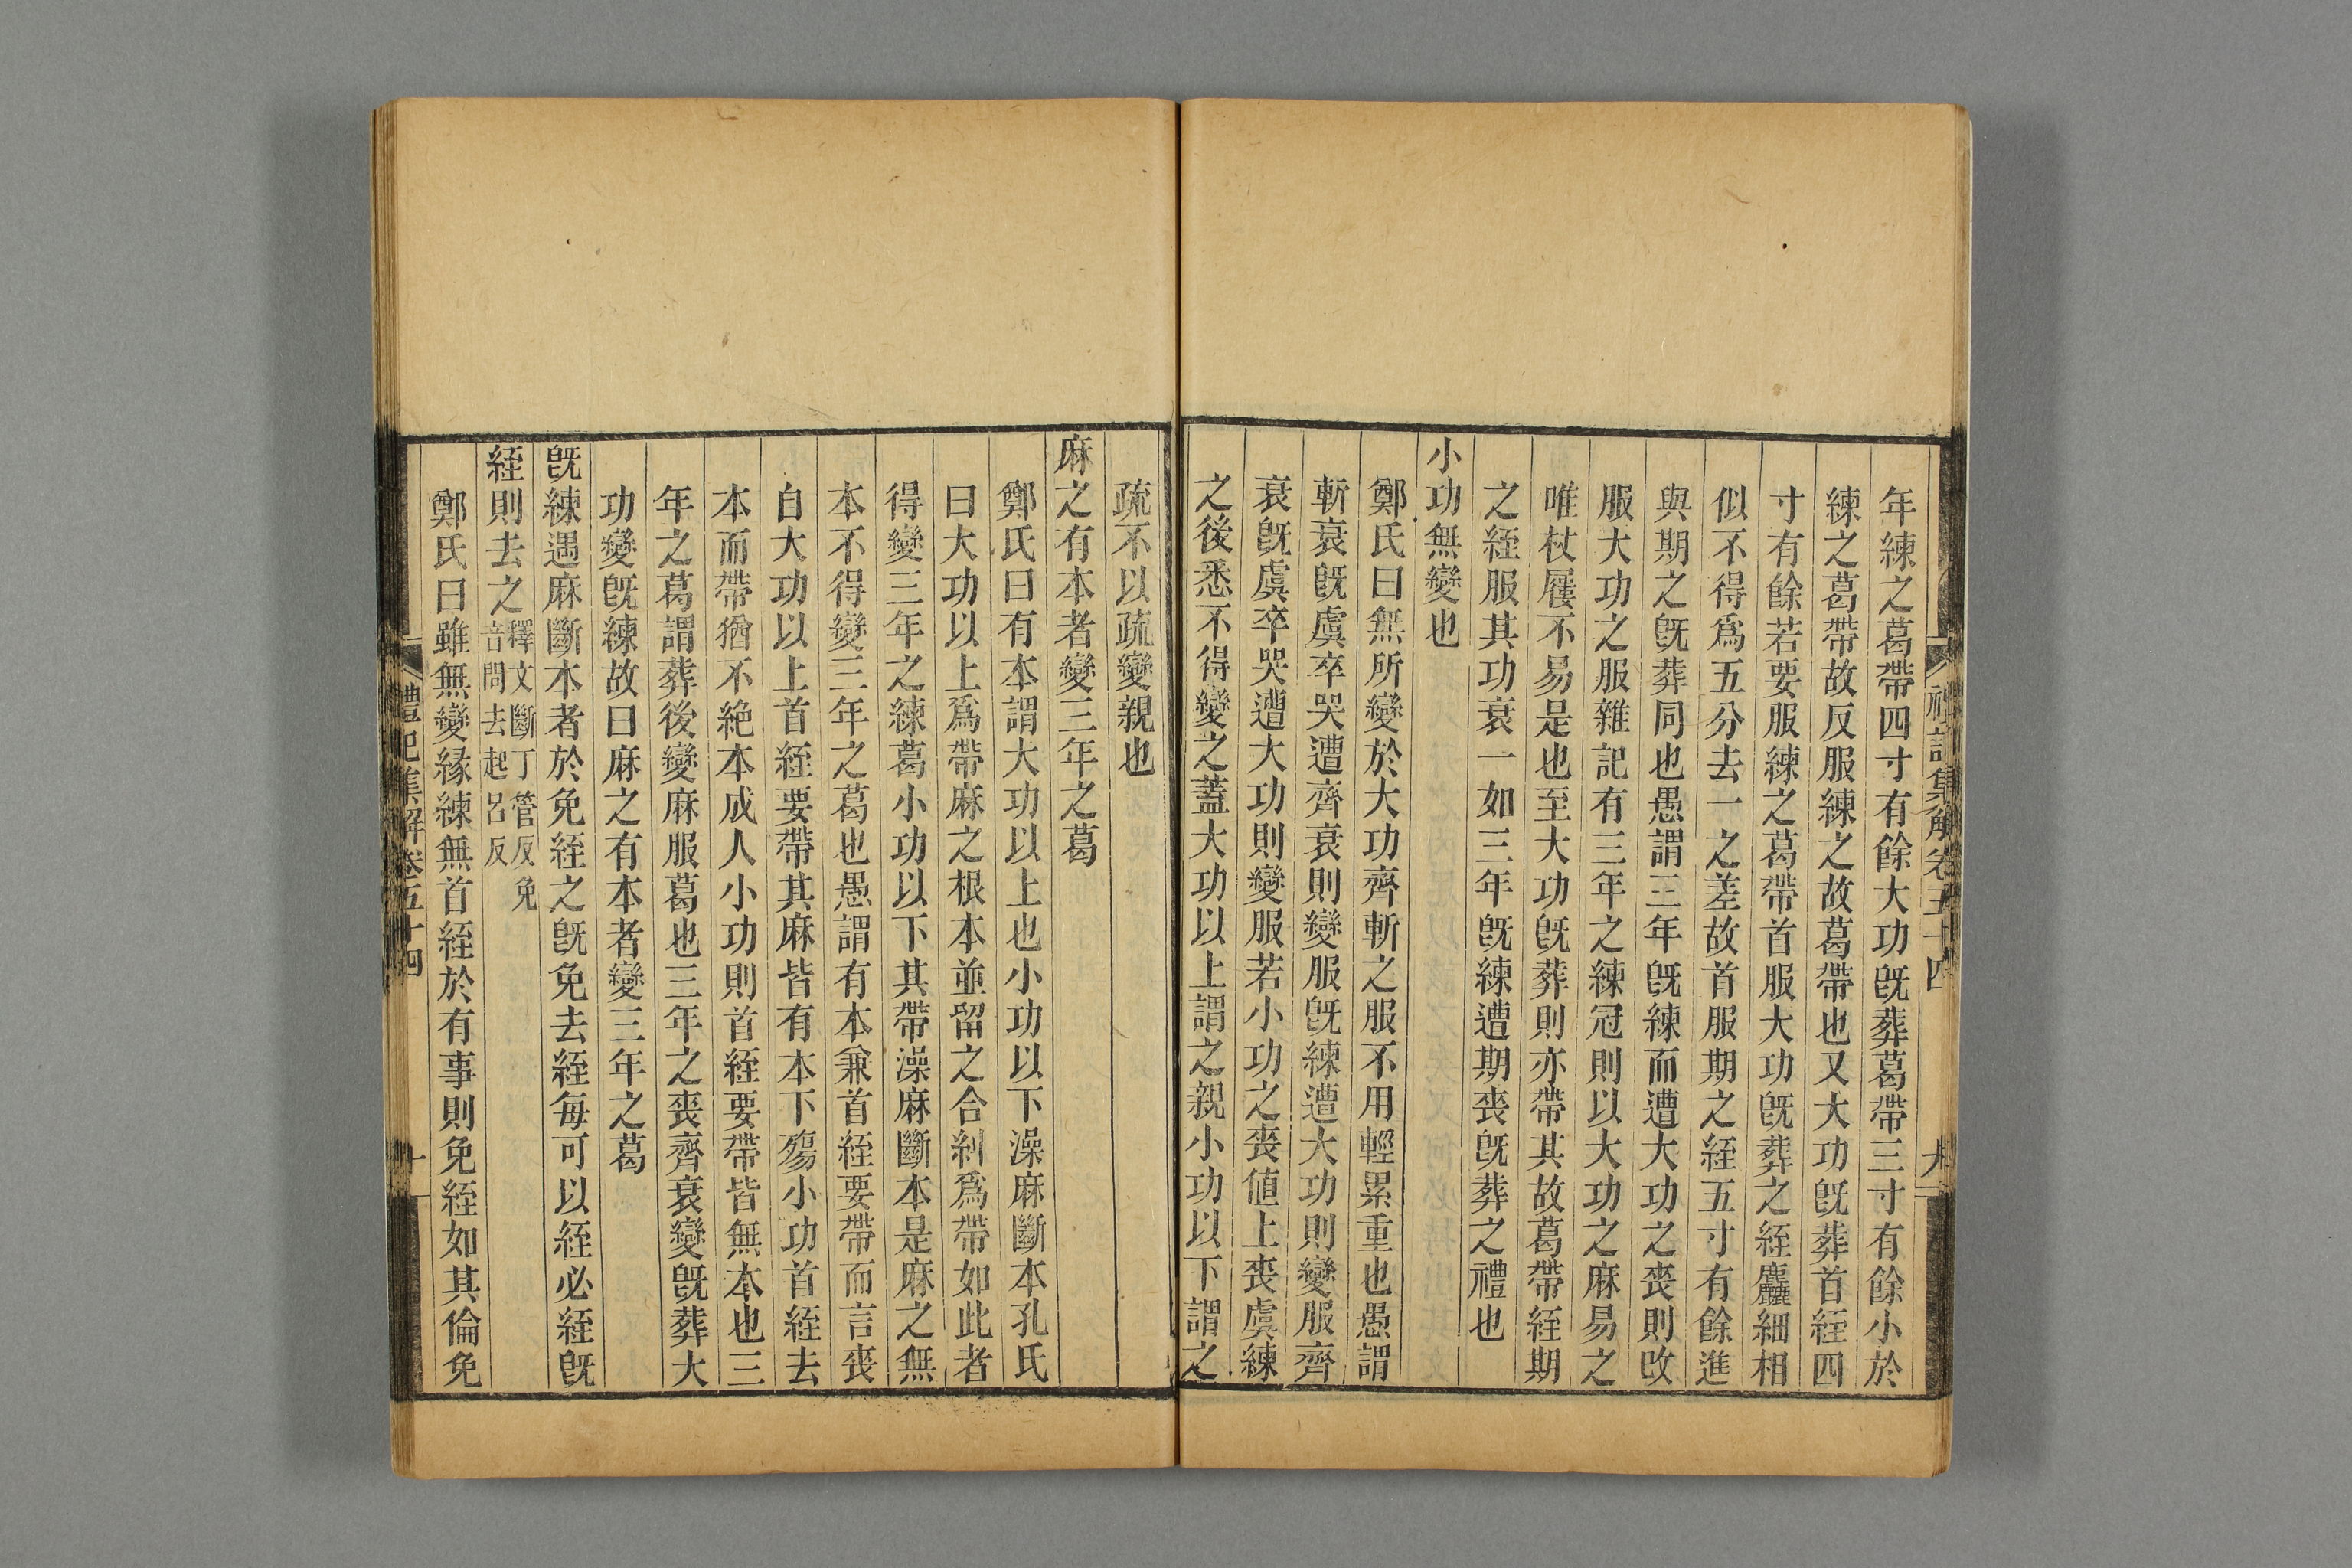 禮記集解卷五十四
九
年練之葛帶四寸有餘大功既葬葛帶三寸有餘小於
練之葛帶故反服練之故葛帶也又大功既葬首絰四
寸有餘若要服練之葛帶首服大功既葬之絰麤細相
似不得爲五分去一之差故首服期之絰五寸有餘進
與期之既葬同也愚謂三年既練而遭大功之喪則改
服大功之服雜記有三年之練冠則以大功之麻易之
唯杖屨不易是也至大功既葬則亦帶其故葛帶絰期
之絰服其功衰一如三年既練遭期喪既葬之禮也
小功無變也
鄭氏曰無所變於大功齊斬之服不用輕累重也愚謂
斬衰既虞卒哭遭齊衰則變服既練遭大功則變服齊
衰既虞卒哭遭大功則變服若小功之喪値上喪虞練
之後悉不得變之蓋大功以上謂之親小功以下謂之
疏不以疏變親也
麻之有本者變三年之葛
鄭氏曰有本謂大功以上也小功以下澡麻斷本孔氏
曰大功以上爲帶麻之根本並留之合糾爲帶如此者
得變三年之練葛小功以下其帶澡麻斷本是麻之無
本不得變三年之葛也愚謂有本兼首絰要帶而言喪
自大功以上首絰要帶其麻皆有本下殤小功首絰去
本而帶猶不絶本成人小功則首絰要帶皆無本也三
年之葛謂葬後變麻服葛也三年之喪齊衰變既葬大
功變既練故曰麻之有本者變三年之葛
既練遇麻斷本者於免絰之既免去絰每可以絰必絰既
絰則去之釋文斷丁管反免
音問去起呂反
鄭氏曰雖無變緣練無首絰於有事則免絰如其倫免
禮記集解卷五十四
十